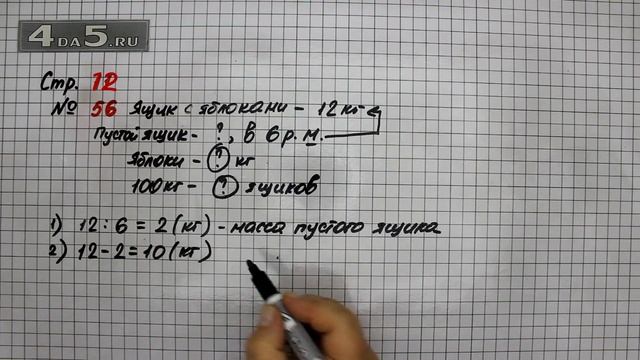 4DA5.RU
Стр. 12
№ 56 Ящик с яблоками - 12 кг
Пустой ящик - ?, в 6 р. м.
Яблоки - ? кг
100кг - ? ящиков
1) 12 : 6 = 2 (кг) - масса пустого ящика
2) 12 - 2 = 10 (кг)